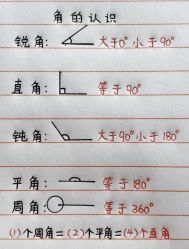 角的认识
锐角: 大于0° 小于90°
直角: 等于90°
钝角: 大于90° 小于180°
平角: 等于180°
周角: 等于360°
(1)个周角=(2)个平角=(4)个直角